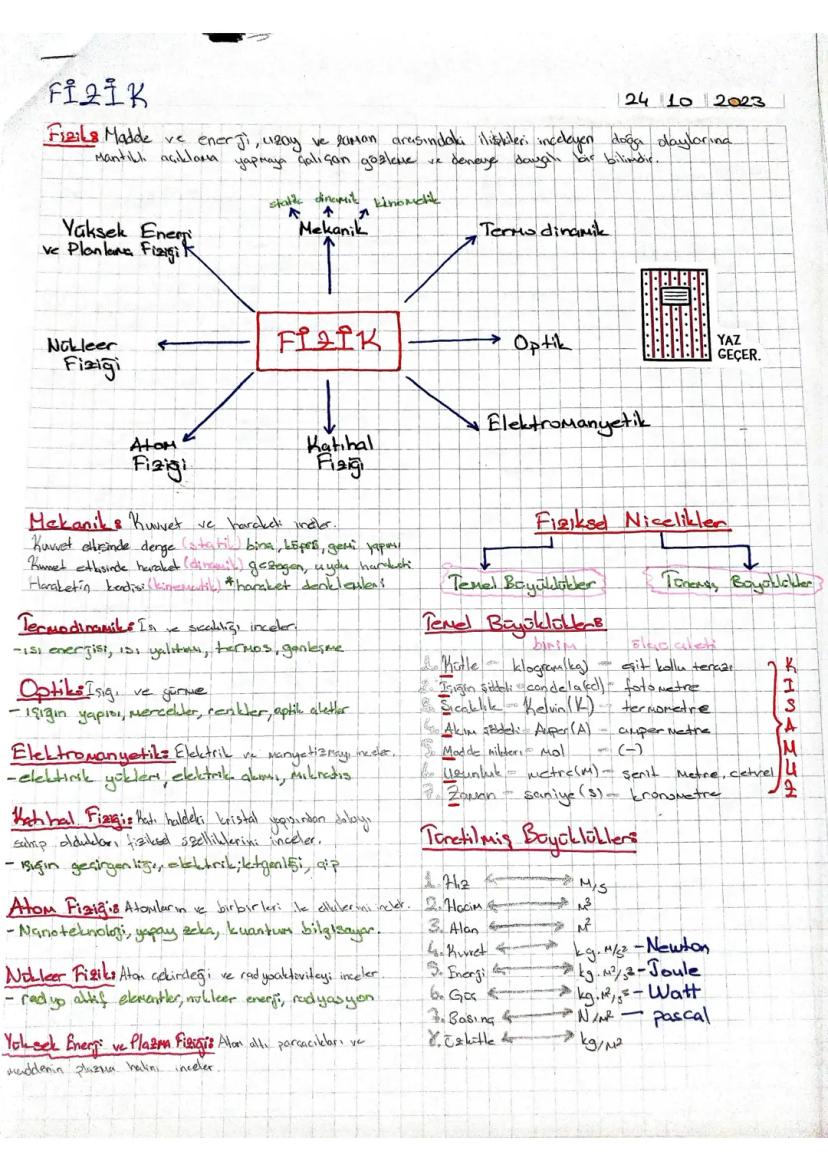 FİZİK
24 10 2023
Fizik: Madde ve enerji, uzay ve zaman arasındaki ilişkileri inceleyen doğa olaylarına
Mantıklı açıklama yapmaya çalışan gözleme ve deneye dayalı bir bilimdir.
statik dinamik kinematik
Mekanik
Yüksek Enerji
ve Planlama Fiziği
Termodinamik
FİZİK
Nükleer
Fiziği
Optik
YAZ
GEÇER.
Elektromanyetik
Atom
Fiziği
Katıhal
Fiziği
Mekanik: Kuvvet ve hareketi inceler.
Kuvvet etkisinde denge (statik) bina, köprü, gemi yapımı
Kuvvet etkisinde hareket (dinamik) gezegen, uydu hareketi
Hareketin kendisi (kinematik) *hareket denklemleri
Termodinamik: Isı ve sıcaklığı inceler.
-ısı enerjisi, ısı yalıtımı, termos, genleşme
Optik: Işığı ve görme
- ışığın yapısı, mercekler, renkler, optik aletler
Elektromanyetik: Elektrik ve manyetizmayı inceler.
-elektrik yükleri, elektrik akımı, mıknatıs
Katıhal Fiziği: Katı haldeki kristal yapısından dolayı
sahip oldukları fiziksel özelliklerini inceler.
- Işığın geçirgenliği, elektrik iletgenliği, çip
Atom Fiziği: Atomların ve birbirleri ile etkilerini inceler.
- Nanoteknoloji, yapay zeka, kuantum bilgisayar.
Nükleer Fizik: Atom çekirdeği ve radyoaktiviteyi inceler.
- radyo aktif elementler, nükleer enerji, radyasyon
Yüksek Enerji ve Plazma Fiziği: Atom altı parçacıkları ve
maddenin plazma halini inceler.
Fiziksel Nicelikler
Temel Büyüklükler
Türemiş Büyüklükler
Temel Büyüklükler
birim ölçü aleti
1. Kütle - kilogram(kg) - eşit kollu terazi K
2. Işığın şiddeti - candela(cd) - fotometre I
3. Sıcaklık - Kelvin(K) - termometre S
4. Akım şiddeti - Amper(A) - ampermetre A
5. Madde miktarı - mol - (-) M
6. Uzunluk - metre(m) - şerit metre, cetvel U
7. Zaman - saniye(s) - kronometre Z
Türetilmiş Büyüklükler
1. Hız M/s
2. Hacim M³
3. Alan M²
4. Kuvvet kg.M/s² - Newton
5. Enerji kg.M²/s² - Joule
6. Güç kg.M²/s³ - Watt
7. Basınç N/M² - pascal
8. Özkütle kg/M²